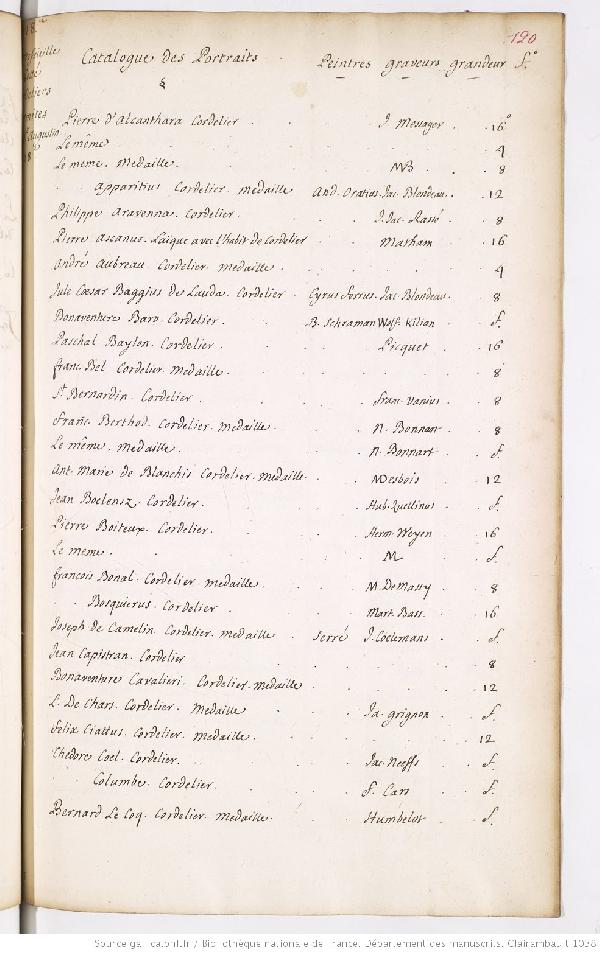 120
Catalogue des Portraits . Peintres graveurs grandeur f.°
Pierre d'Alcanthara Cordelier . . J. Messager . 16°
Le même . . . . 4
Le même . Medaille . . MB . . 8
Apparitius Cordelier . medaille And. Oratius Jac. Blondeau . . 12
Philippe Aravenna . Cordelier . . . J. Jac. Rassé . . 8
Pierre Ascanus . Laique avec l'habit de Cordelier . . Matham . . 16
André Aubreau . Cordelier . medaille . . . . 4
Jule Cœsar Baggius de Lauda . Cordelier . Cyrus ferrus . Jac. Blondeau . 8
Bonaventure Baro . Cordelier . . B. Schraman Wolf. Kilian . f.
Paschal Baylon . Cordelier . . . Picquet . . 16
franc. Bel Cordelier . Medaille . . . . 8
St Bernardin . Cordelier . . . fran. Vanius . . 8
Franc. Berthod . Cordelier . medaille . . N. Bonnart . . 8
Le même . medaille . . . N. Bonnart . f.
Ant. Marie de Blanchis Cordelier . medaille . . . 12
Jean Boelensz . Cordelier . . . Hub. Quellinus . f.
Pierre Boiteux . Cordelier . . . Herm. Weyen . 16
Le même . . . M . . f.
francois Bonal . Cordelier medaille . . . M. De Massy . 8
Bosquierus . Cordelier . . . Mart. Bass. . 16
Joseph de Camelin . Cordelier . medaille . Serré J. Coelemans . f.
Jean Capistran . Cordelier . . . . 8
Bonaventure Cavalieri . Cordelier . medaille . . . 12
L. De Chars . Cordelier . Medaille . . Ja. grignon . f.
felix Ciattus . Cordelier . medaille . . . . 12
Coel . Cordelier . . . Jac. Neeffs . f.
Columbe . Cordelier . . . f. Cars . f.
Bernard Le Coq . Cordelier . medaille . . Humbelot . f.
Source gallica.bnf.fr / Bibliothèque nationale de France. Département des manuscrits. Clairambault 1038